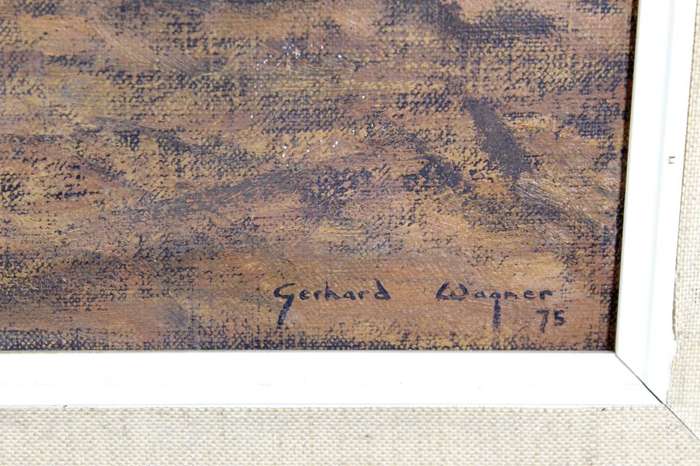 Gerhard Wagner
75